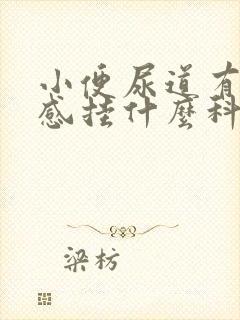 小便尿道有
感挂什麼科
梁枋